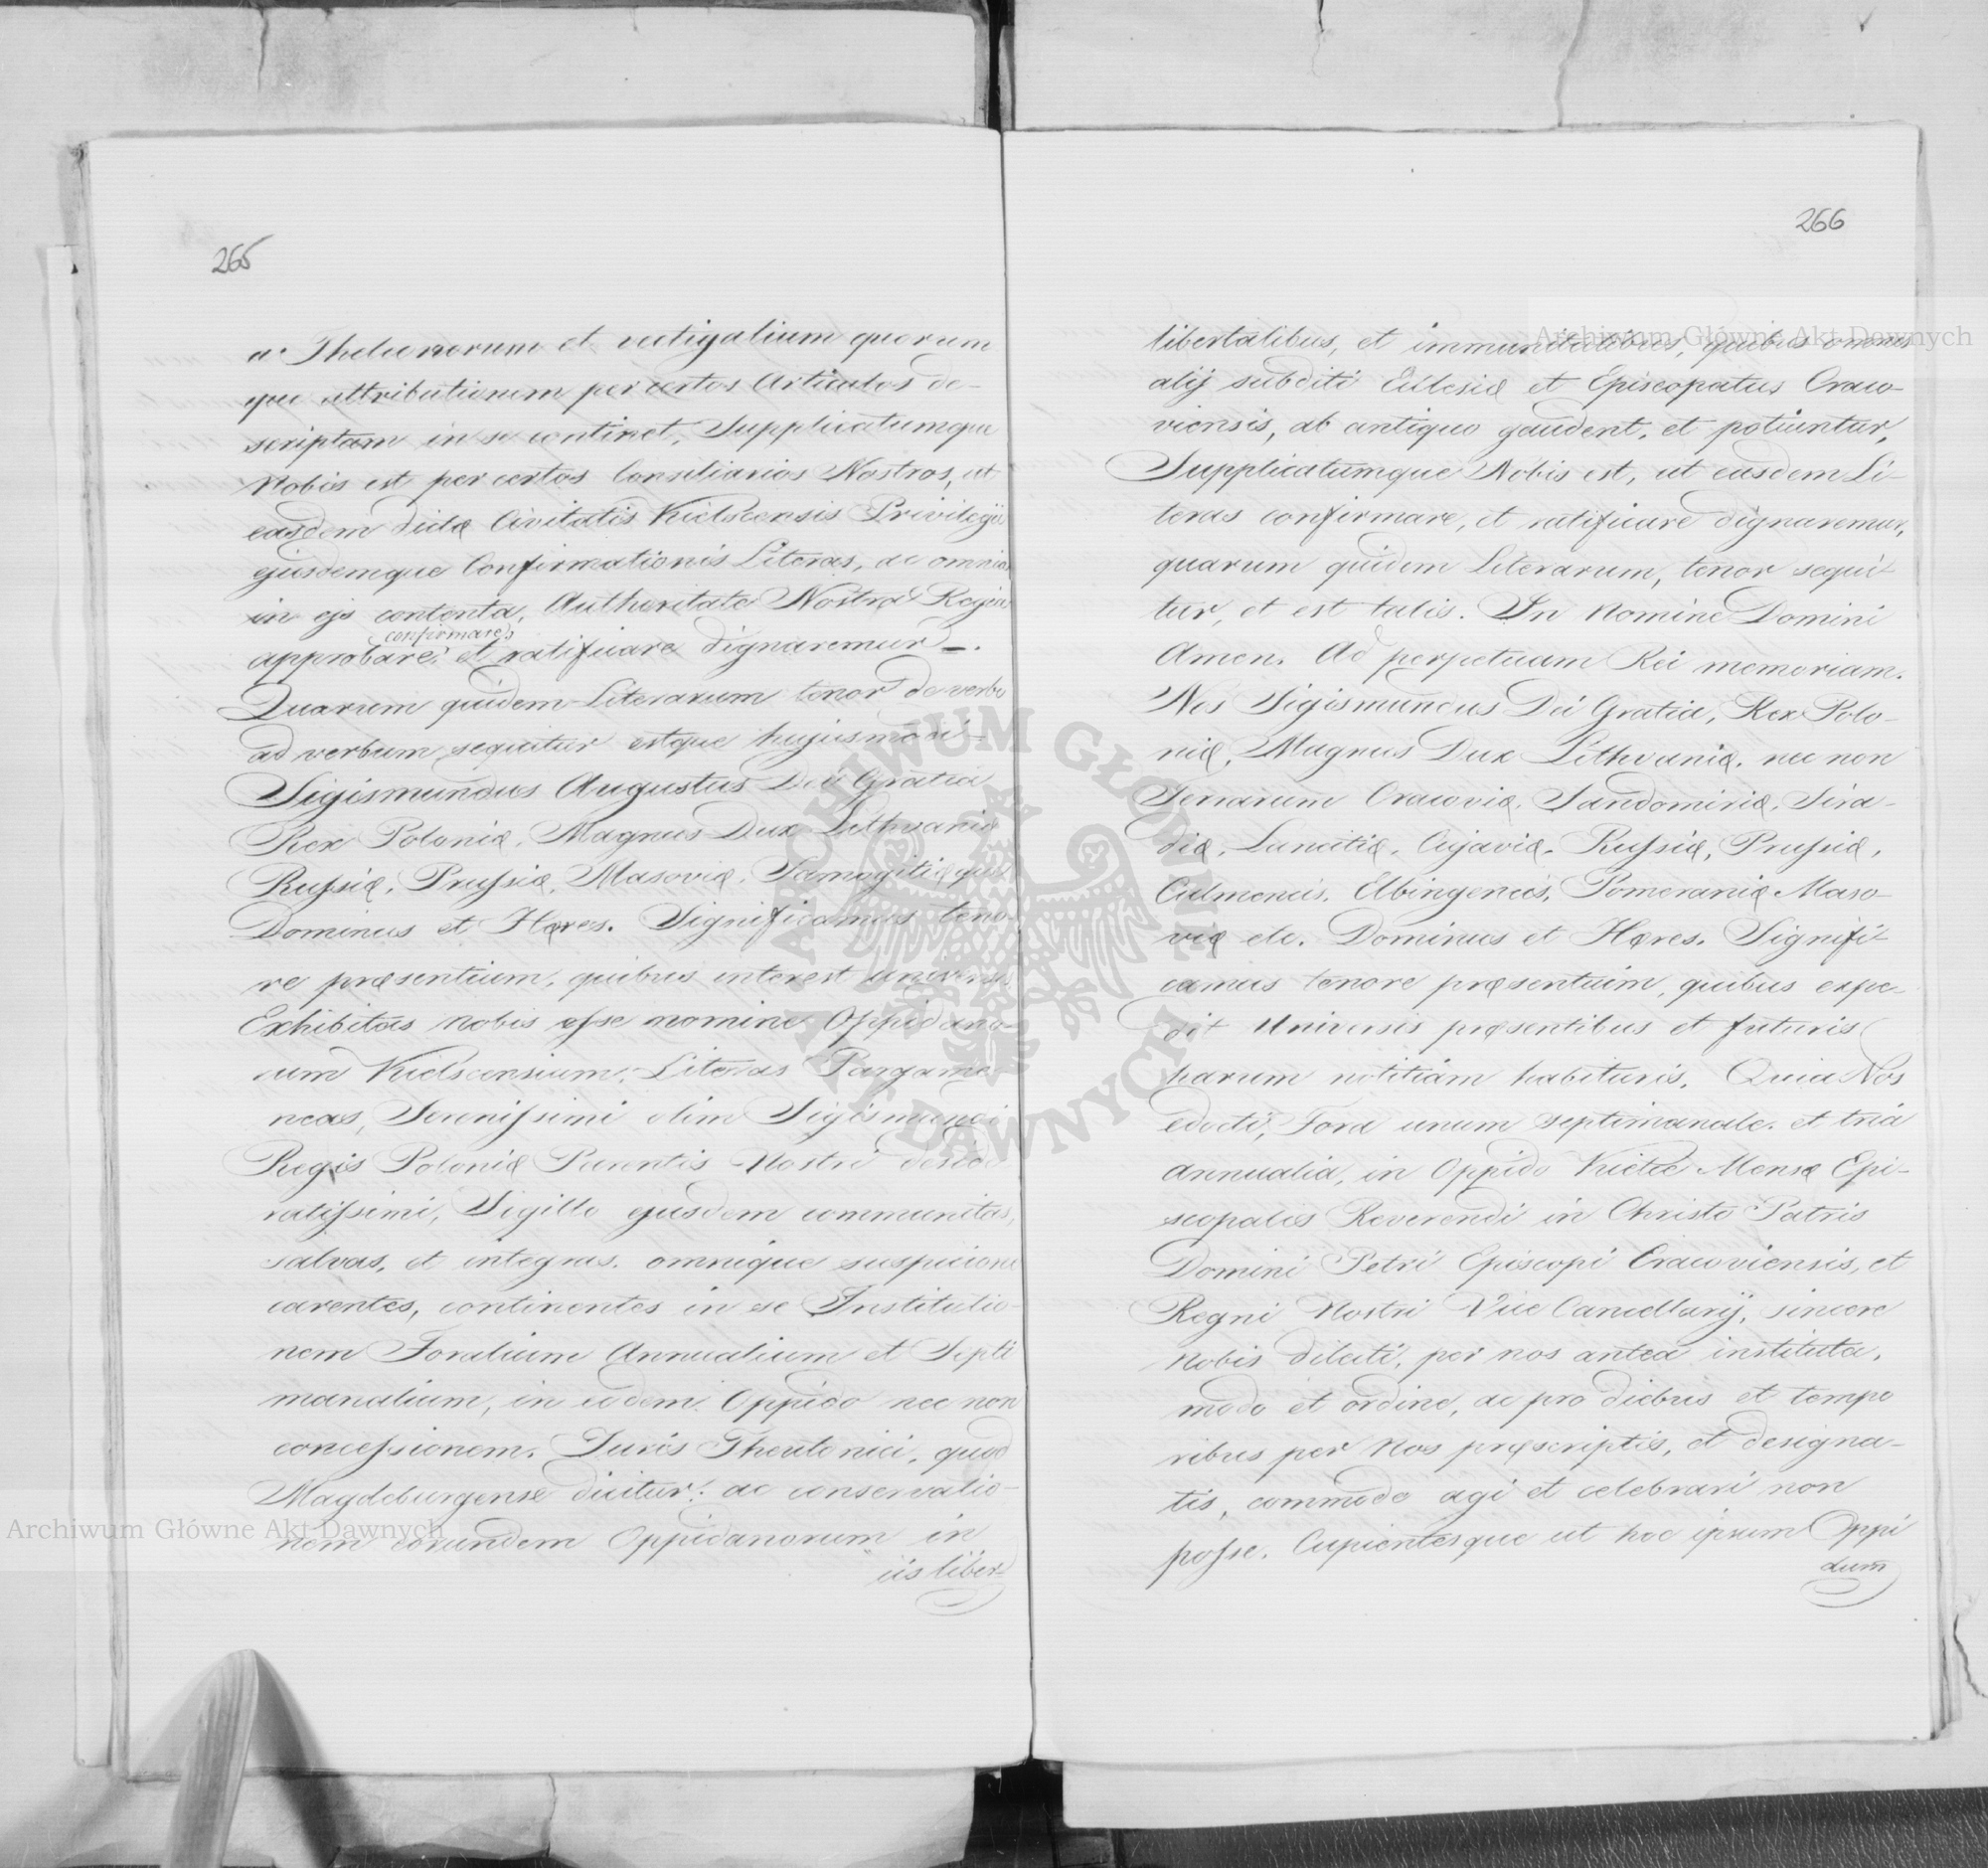 265
a Theleonorum et vectigalium quorum
que attributionem per certos Articulos de-
scriptam in se continet, Supplicatumque
Nobis est per certos Consiliarios Nostros, ut
easdem dictæ Civitatis Kielscensis Privilegii
ejusdemque Confirmationis Literas, ac omnia
in ejs contenta, Authoritate Nostra Regia
confirmare,
approbare, et ratificare dignaremur.
Quarum quidem Literarum tenor de verbo
ad verbum sequitur estque hujusmodi
Sigismundus Augustus Dei Gratia
Rex Poloniæ, Magnus Dux Lithvaniæ
Russiæ, Prussiæ, Masoviæ, Samogitiæque
Dominus et Hæres. Significamus teno-
re præsentium, quibus interest universis
Exhibitas nobis esse nomine Oppidano-
rum Kielscensium, Literas Pargame-
neas, Serenissimi olim Sigismundi
Regis Poloniæ Parentis Nostri deside
ratissimi, Sigillo ejusdem communitas,
salvas, et integras, omnique suspicione
carentes, continentes in se Institutio-
nem Foralium Annualium et Septi
manalium, in eodem Oppido nec non
concessionem, Juris Theutonici, quod
Magdeburgense dicitur: ac conservatio-
nem eorundem Oppidanorum in
iis liber-
266
libertatibus, et immunitatibus, quibus omnes
alij subditi Ecclesiæ et Episcopatus Craco-
viensis, ab antiquo gaudent, et potiuntur,
Supplicatumque Nobis est, ut easdem Li-
teras confirmare, et ratificare dignaremur,
quarum quidem Literarum, tenor sequi-
tur, et est talis. In Nomine Domini
Amen. Ad perpetuam Rei memoriam.
Nos Sigismundus Dei Gratia, Rex Polo-
niæ, Magnus Dux Lithvaniæ, nec non
Terrarum Cracoviæ, Sandomiriæ, Sira-
diæ, Lancitiæ, Cujaviæ, Russiæ, Prussiæ,
Culmensis, Elbingensis, Pomeraniæ Maso-
viæ etc. Dominus et Hæres. Signifi-
camus tenore præsentium, quibus expe-
dit Universis præsentibus et futuris
harum notitiam habituris, Quia Nos
edocti, Fora unum septimanale, et tria
annualia, in Oppido Kielce Mensæ Epi-
scopalis Reverendi in Christo Patris
Domini Petri Episcopi Cracoviensis, et
Regni Nostri Vice Cancellarij, sincere
Nobis dilecti, per nos antea instituta,
modo et ordine, ac pro diebus et tempo
ribus per Nos præscriptis, et designa-
tis, commode agi et celebrari non
posse. Cupientesque ut hoc ipsum Oppi
dum
Archiwum Główne Akt Dawnych
Archiwum Główne Akt Dawnych
ARCHIWUM GŁÓWNE AKT DAWNYCH